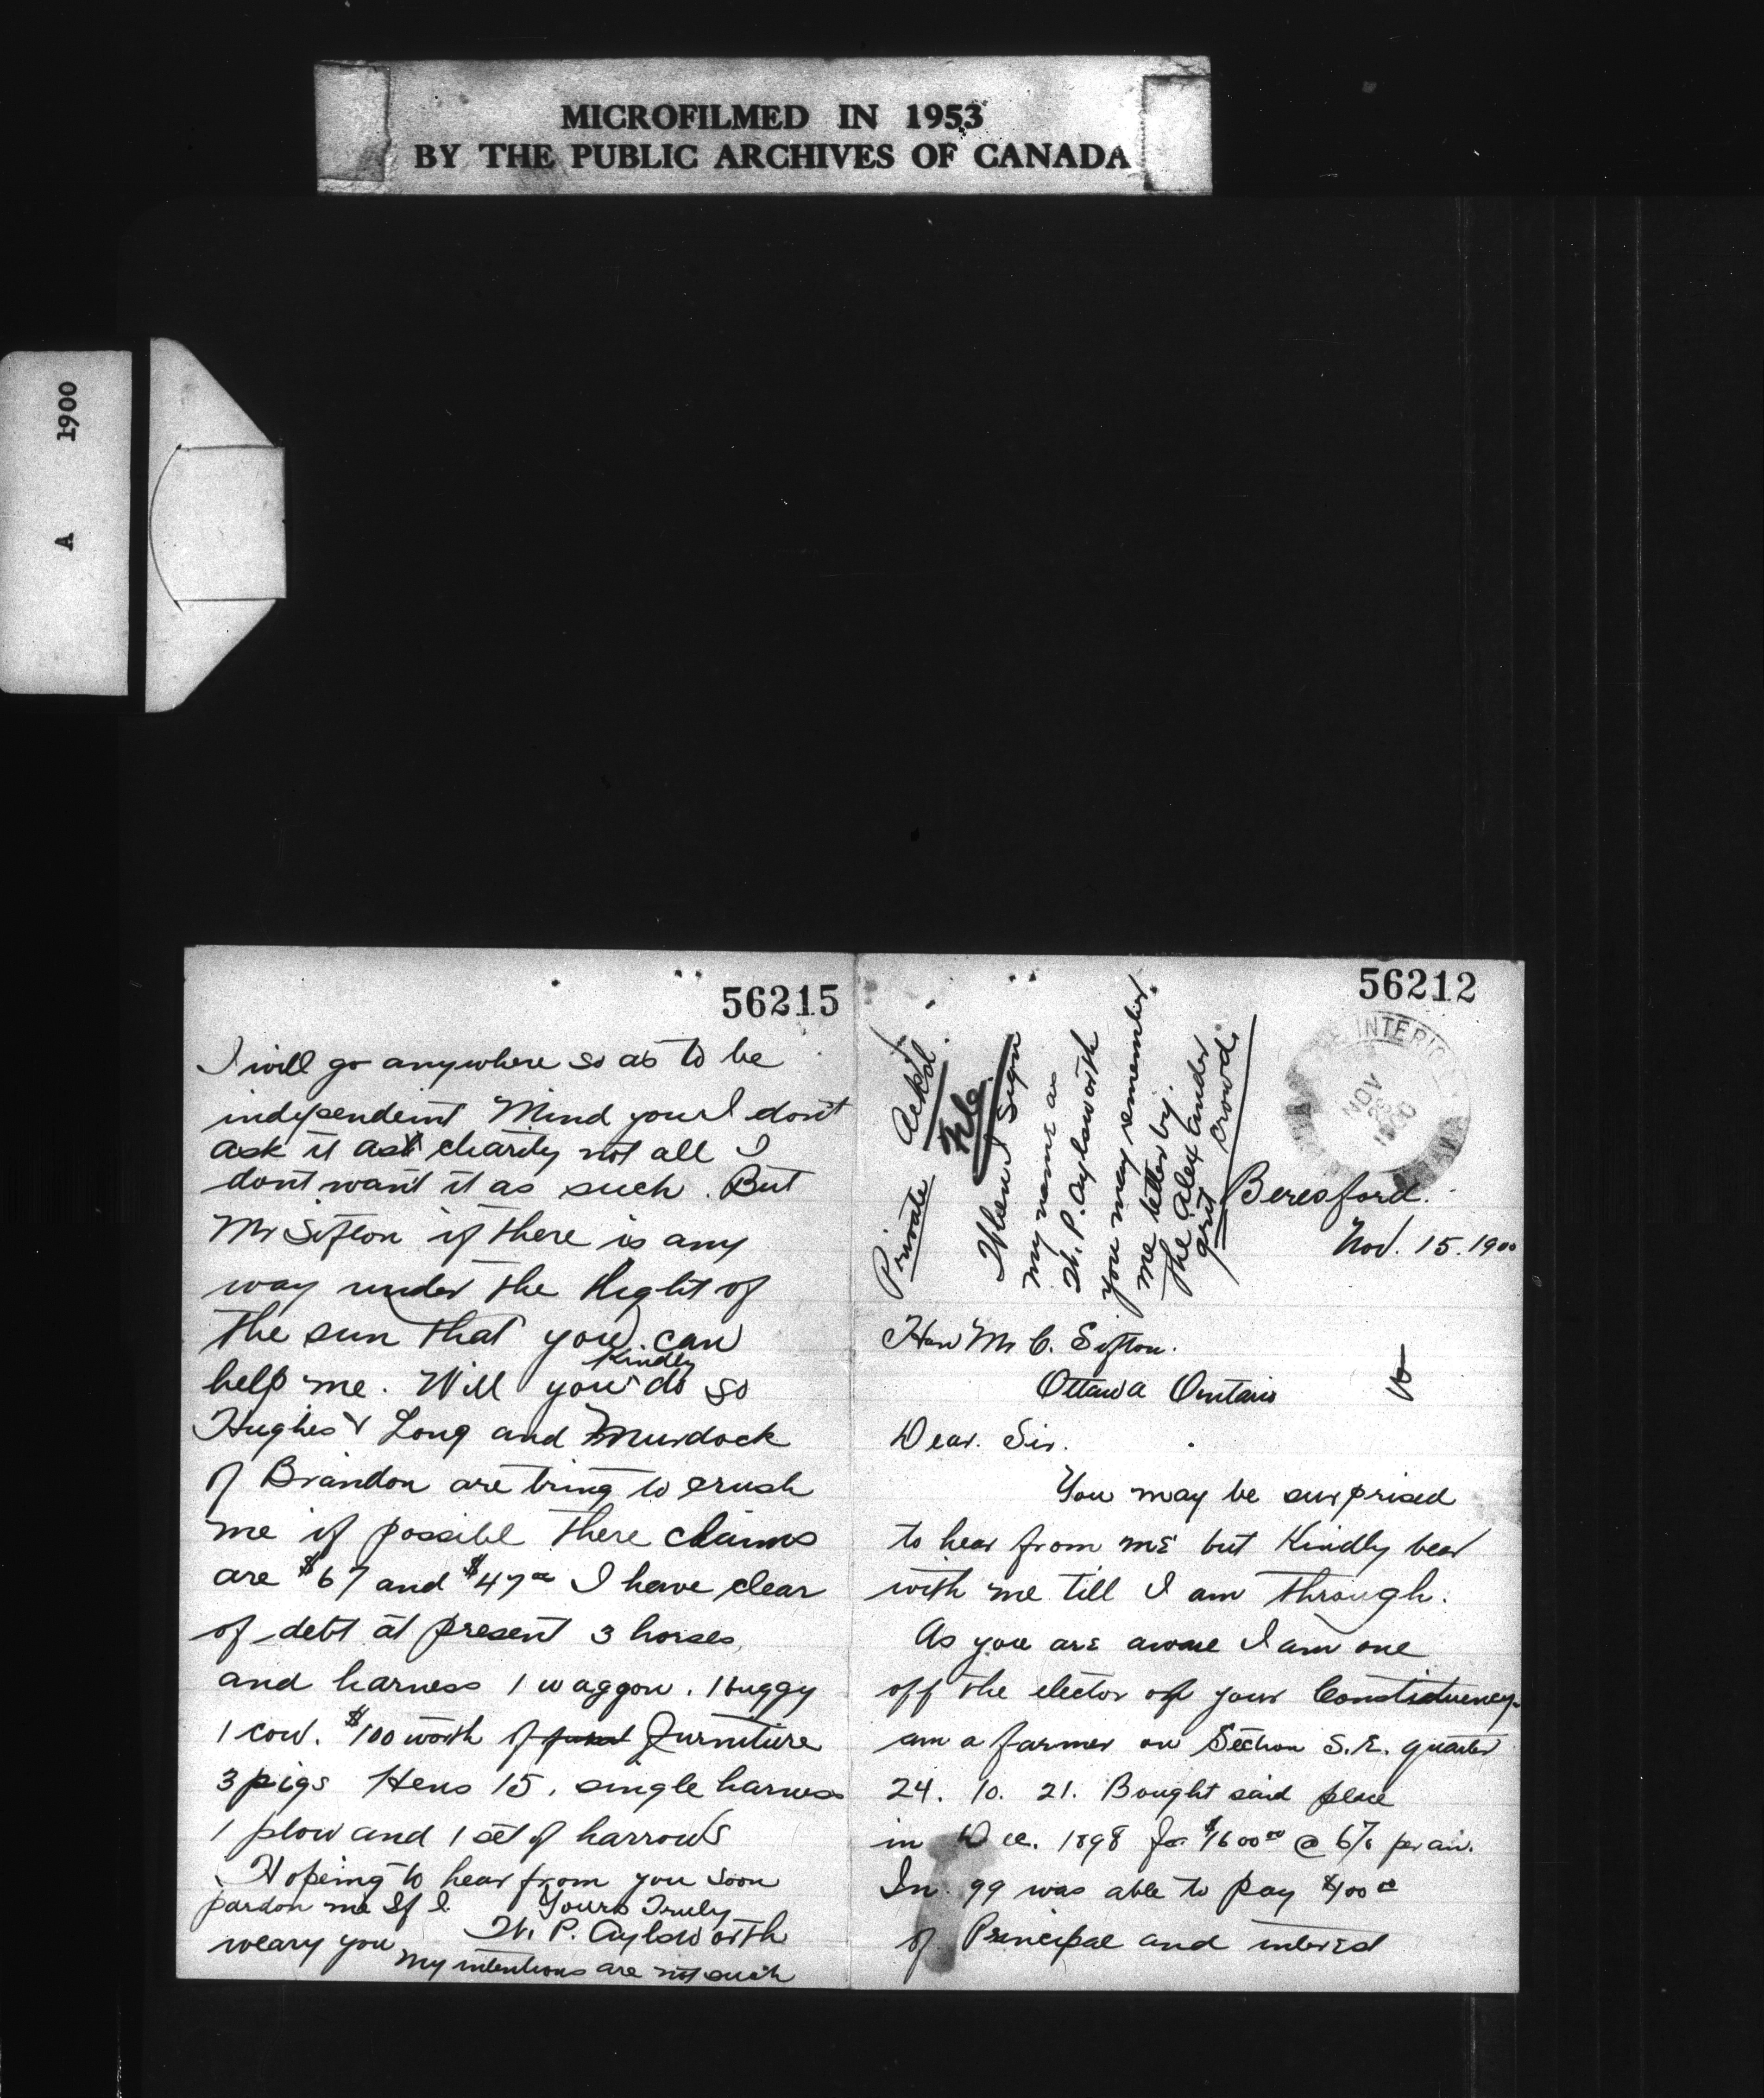 MICROFILMED IN 1953
BY THE PUBLIC ARCHIVES OF CANADA
A 1900
56215
I will go anywhere so as to be
independent Mind you I don't
ask it as charity not all I
dont want it as such. But
Mr Sifton if there is any
way under the Light of
the sun that you can
Kindly
help me. Will you do so
Hughes & Long and Murdock
of Brandon are tring to crush
me if possibl there claims
are $67 and $47 I have clear
of debt at present 3 horses
and harness 1 waggon. 1 buggy
1 cow. $100 worth of furniture
3 pigs Hens 15. single harness
1 plow and 1 set of harrows
Hopeing to hear from you soon
pardon me If I Yours Truly
weary you W. P. Aylsworth
My intentions are not such
56212
INTERIOR
NOV
1900
Private Ackd.
File
When I Sign
my name as
W. P. Aylsworth
you may remember
me better by.
the Alexander
grit crowd.
Beresford.
Nov. 15. 1900
Hon Mr C. Sifton.
Ottawa Ontario
Dear. Sir.
You may be surprised
to hear from me but Kindly bear
with me till I am through.
As you are aware I am one
off the elector of your Constituency
am a farmer on Section S.E. quarter
24. 10. 21. Bought said place
in Dec. 1898 for $1600 00 @ 6% per an.
In 99 was able to pay $400
of Principal and interest